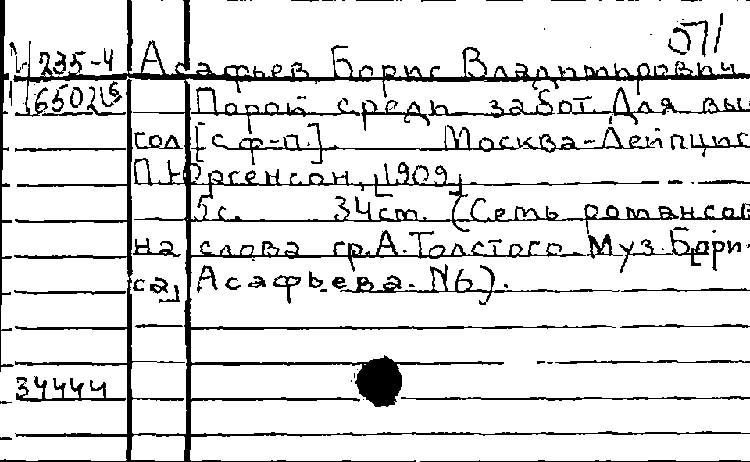 071
235-4 Асафьев Борис Владимирович
6502 Порой средь забот. Для выс
сол[с ф-п.]. Москва-Лейпциг
П.Юргенсон, [1909]
5с. 34см. (Семь романсов
на слова гр.А.Толстого. Муз.Бори-
са Асафьева. №6).
34444